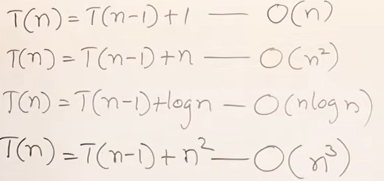 T(n) = T(n-1) + 1 — O(n)
T(n) = T(n-1) + n — O(n²)
T(n) = T(n-1) + log n — O(n log n)
T(n) = T(n-1) + n² — O(n³)